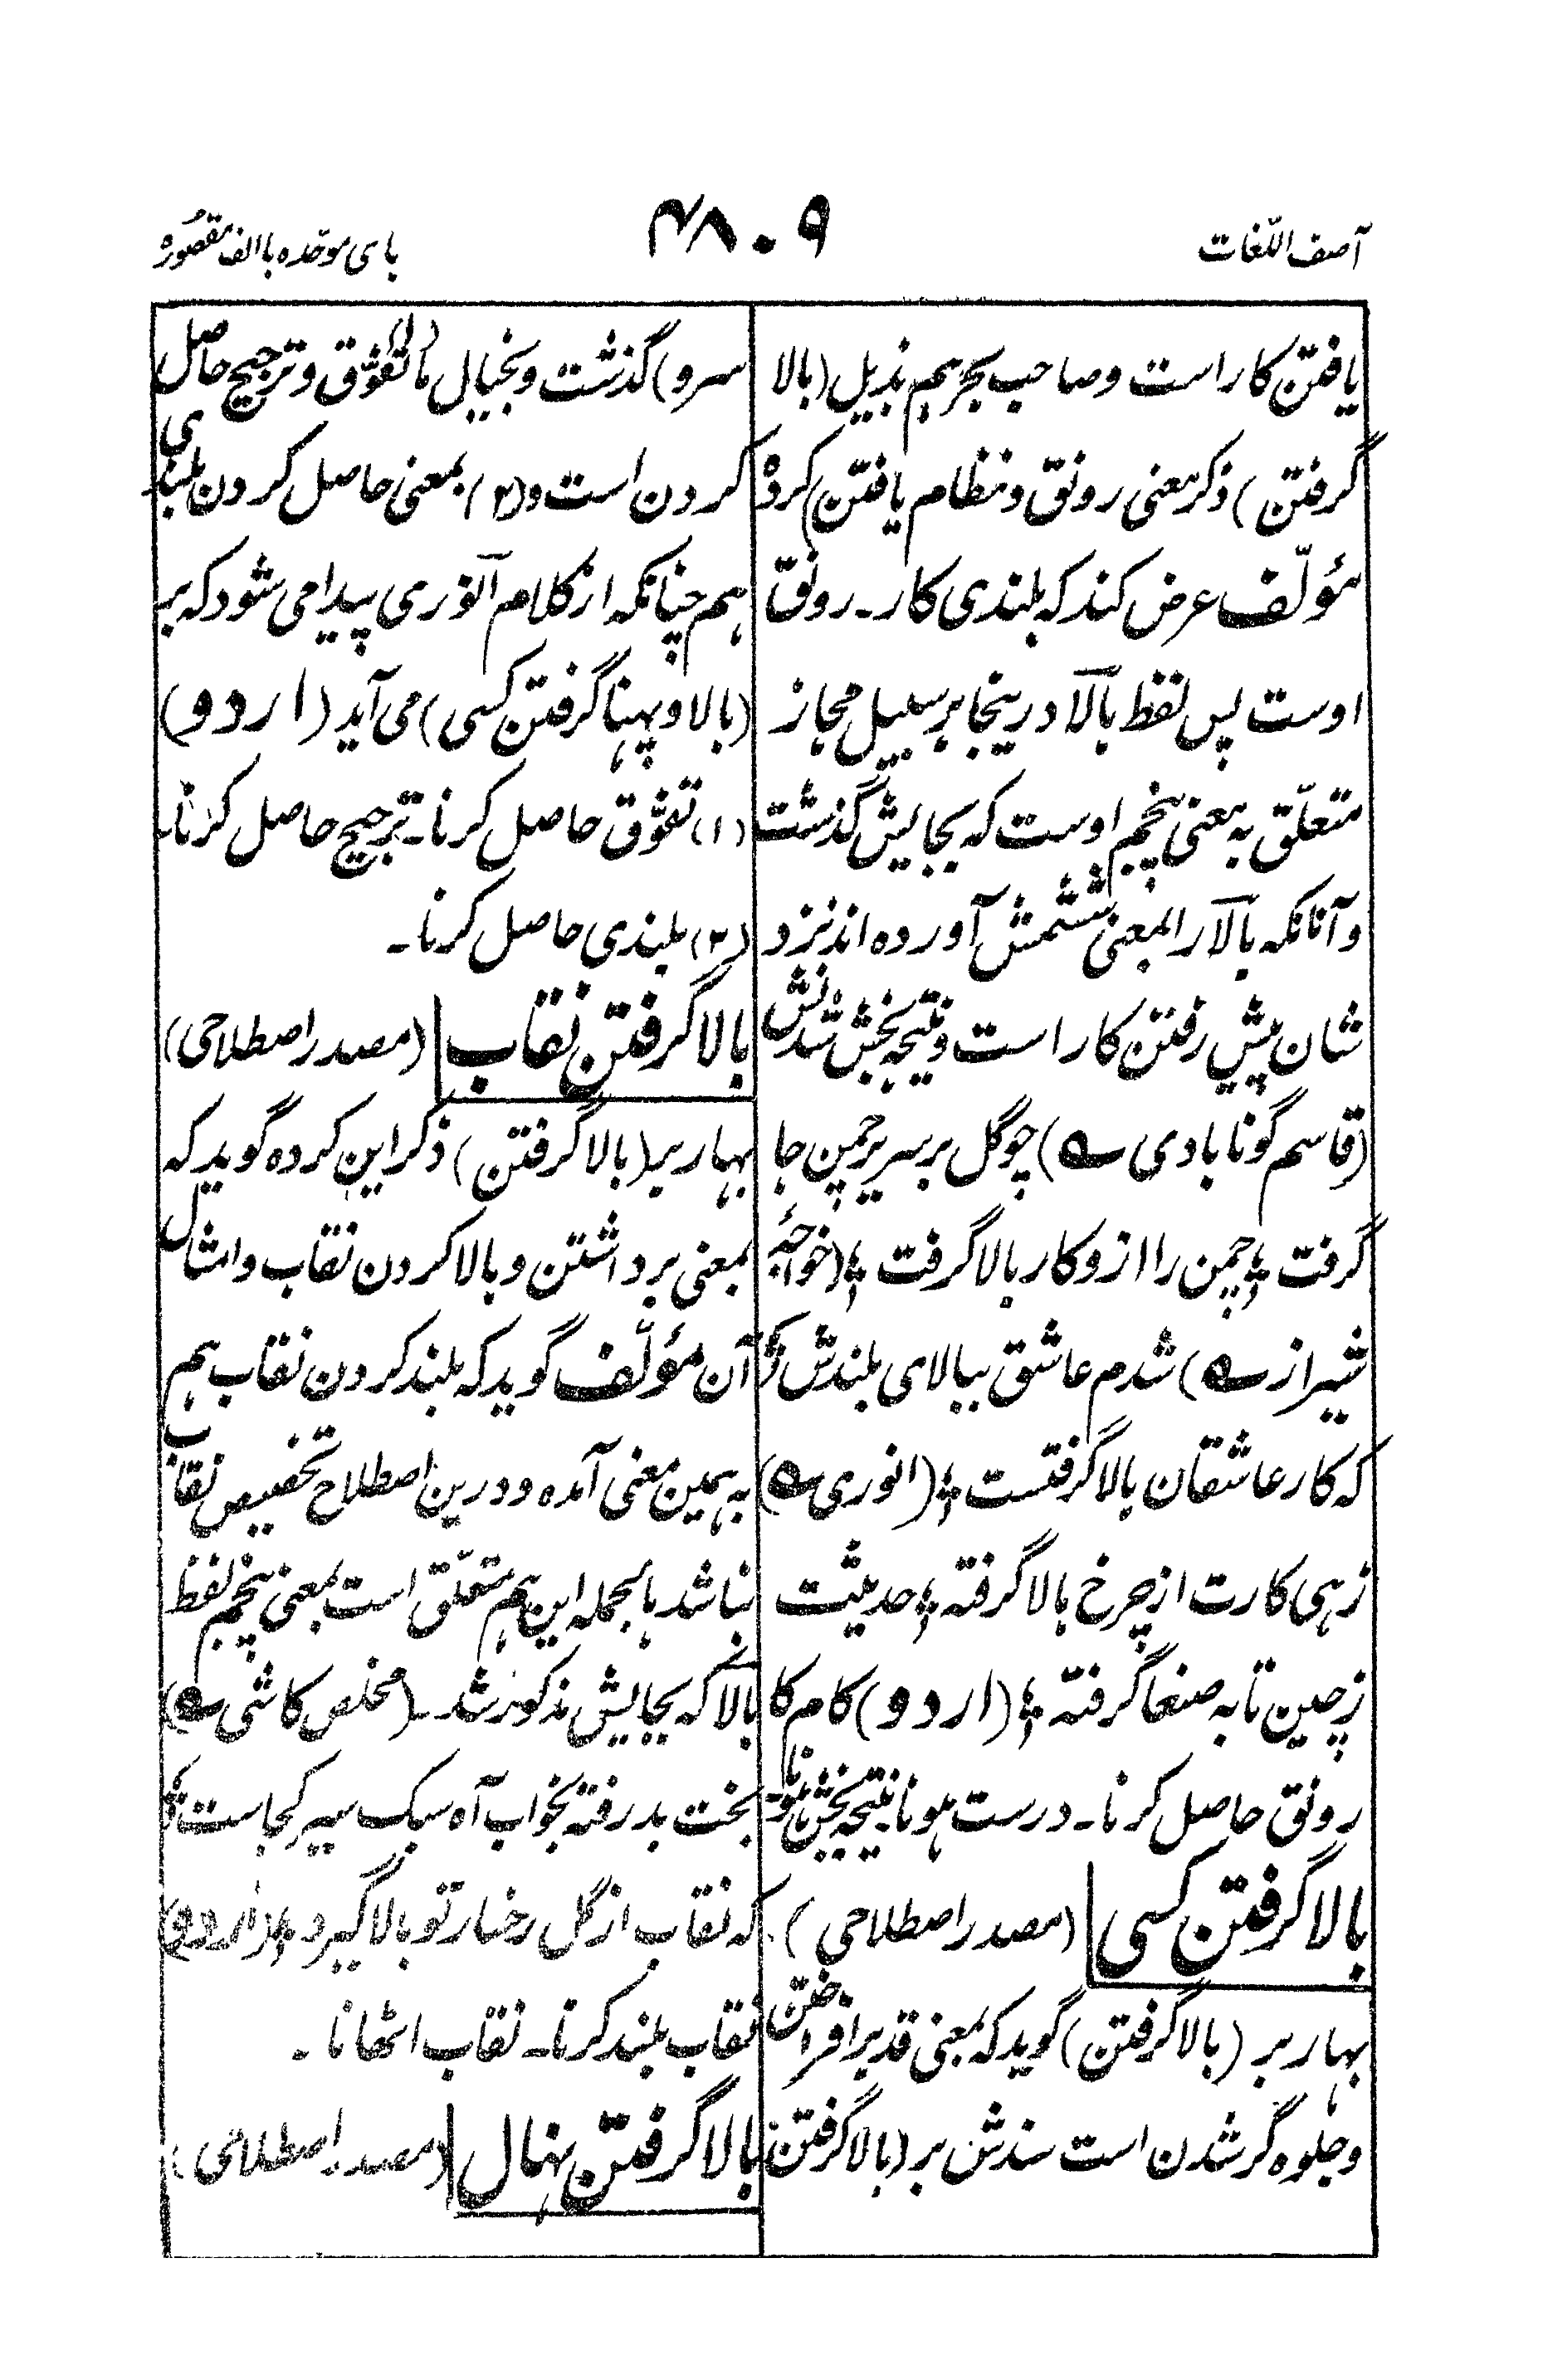 آصف اللّغات
۴۸۰۹
بای موحّدہ باالف مقصُورہ
یافتن کار است وصاحب بحر ہم بذیل (بالا
گرفتن) ذکر معنی رونق ونظام یافتن کردہ
مؤلّف عرض کند کہ بلندی کار۔ رونق
اوست پس لفظ بالا درینجا بر سبیل مجاز
متعلّق بہ معنی پنجم اوست کہ بجایش گذشت
و آنانکہ بالا را بمعنی ششمش آوردہ اند نزد
شان پیش رفتن کار است و نتیجہ بخش شدنش
(قاسم گونابادی ؎) چو گل بر سریر چمن جا
گرفت ؛ چمن را ازو کار بالا گرفت ؛ (خواجۂ
شیراز ؎) شدم عاشق ببالای بلندش ؛
کہ کار عاشقان بالا گرفتست ؛ (انوری ؎)
زہی کارت از چرخ بالا گرفتہ ؛ حدیثت
ز چین تا بہ صنعا گرفتہ ؛ (اردو) کام کا
رونق حاصل کرنا۔ درست ہونا۔ نتیجہ بخش ہونا
بالا گرفتن کسی (مصدر اصطلاحی)
بہار بر (بالا گرفتن) گوید کہ بمعنی قد برافراختن
و جلوہ گر شدن است سندش بر (بالا گرفتن
سرو) گذشت و بخیال ما (۱) تفوّق و ترجیح حاصل
کردن است و (۲) بمعنی حاصل کردن بلندی
ہم چنانکہ از کلام انوری پیدا می شود کہ بر
(بالا و پہنا گرفتن کسی) می آید (اردو)
(۱) تفوّق حاصل کرنا۔ ترجیح حاصل کرنا۔
(۲) بلندی حاصل کرنا۔
بالا گرفتن نقاب (مصدر اصطلاحی)
بہار بر (بالا گرفتن) ذکر این کردہ گوید کہ
بمعنی برداشتن و بالا کردن نقاب و امثال
آن مؤلّف گوید کہ بلند کردن نقاب ہم
بہ ہمین معنی آمدہ و درین اصطلاح تخصیص نقاب
نباشد بالجملہ این ہم متعلّق است بمعنی پنجم لفظ
بالا کہ بجایش مذکور شد۔ (مخلص کاشی ؎)
بخت بد رفتہ بخواب آہ سبک سیر کجاست ؛
کہ نقاب از گل رخسار تو بالا گیرد ؛ (اردو)
نقاب بلند کرنا۔ نقاب اٹھانا۔
بالا گرفتن نہال (مصدر اصطلاحی)